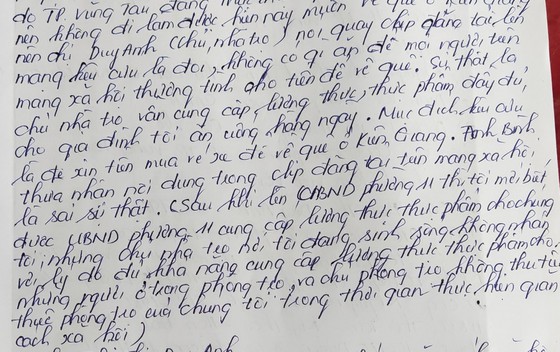 do TP. Vũng Tàu, đang
nên không đi làm được, hiện nay muốn về quê ở Kiên Giang
nên chị Duy Anh (chủ nhà trọ) nói quay clip đăng tải lên
mạng kêu cứu là đói, không có gì ăn để mọi người trên
mạng xã hội thương tình cho tiền để về quê. Sự thật là
chủ nhà trọ vẫn cung cấp lương thực, thực phẩm đầy đủ,
cho gia đình tôi ăn uống hàng ngày. Mục đích kêu cứu
là để xin tiền mua vé xe để về quê ở Kiên Giang. Anh Bình
thừa nhận nội dung trong clip đăng tải trên mạng xã hội
là sai sự thật. (Sau khi lên UBND phường 11 thì tôi mới biết
được UBND phường 11 cung cấp lương thực thực phẩm cho chúng
tôi, nhưng chủ nhà trọ nơi tôi đang sinh sống không nhận
với lý do đủ khả năng cung cấp lương thực thực phẩm cho
những người ở trong phòng trọ, và chủ phòng trọ không thu tiền
phòng trọ của chúng tôi trong thời gian thực hiện giãn
cách xã hội)
Anh